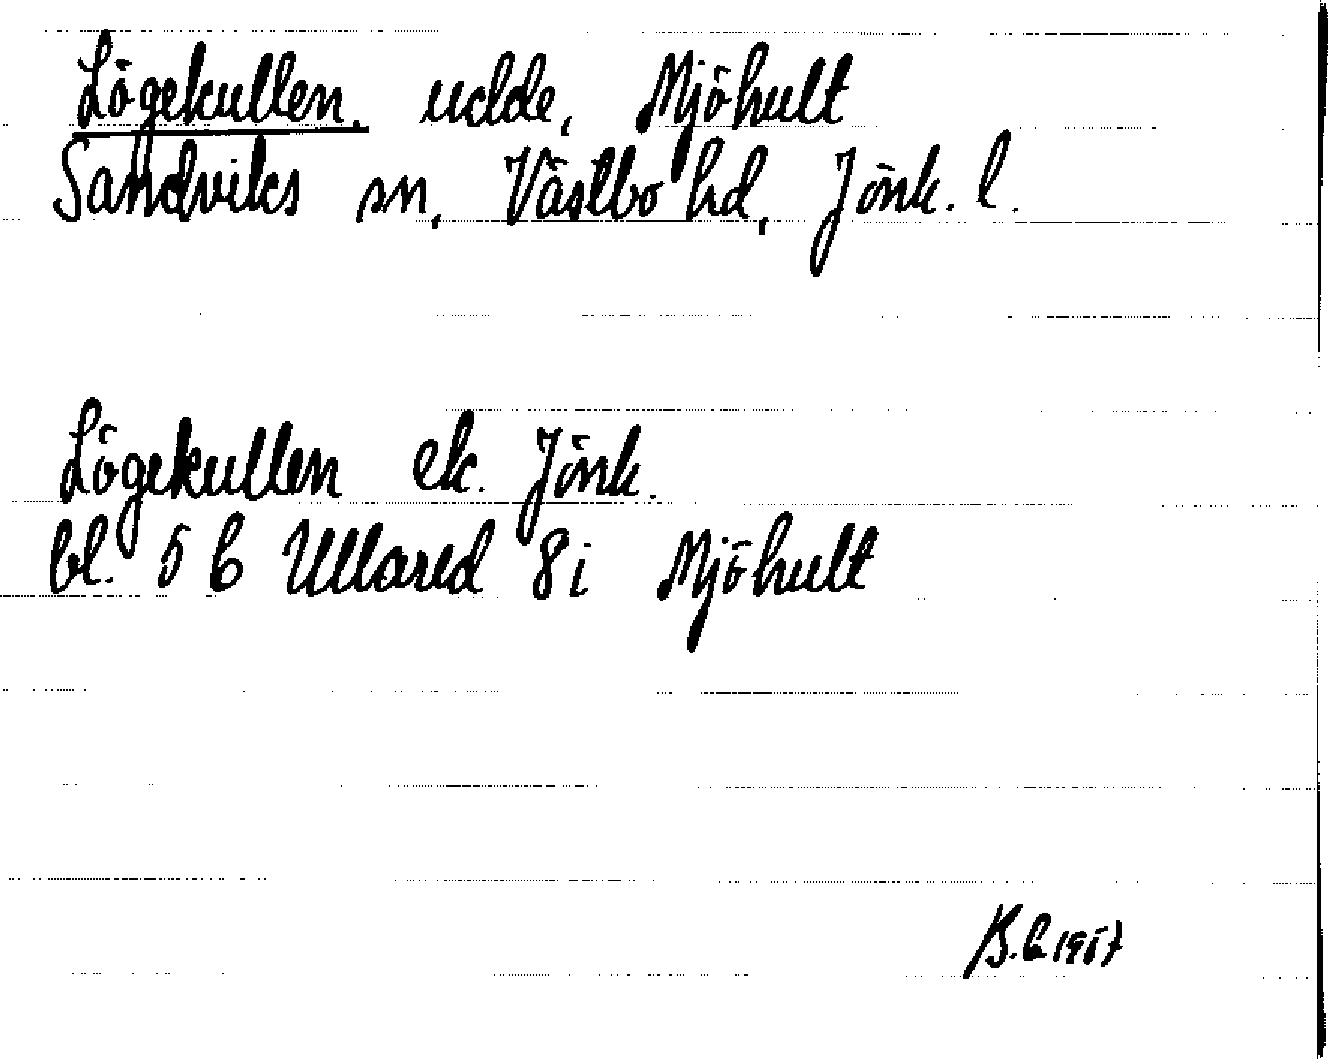 Lögekullen, udde, Mjöhult
Sandviks sn, Västbo hd, Jönk. l.
Lögekullen ek. Jönk.
bl. 5 b Ullared 8i Mjöhult